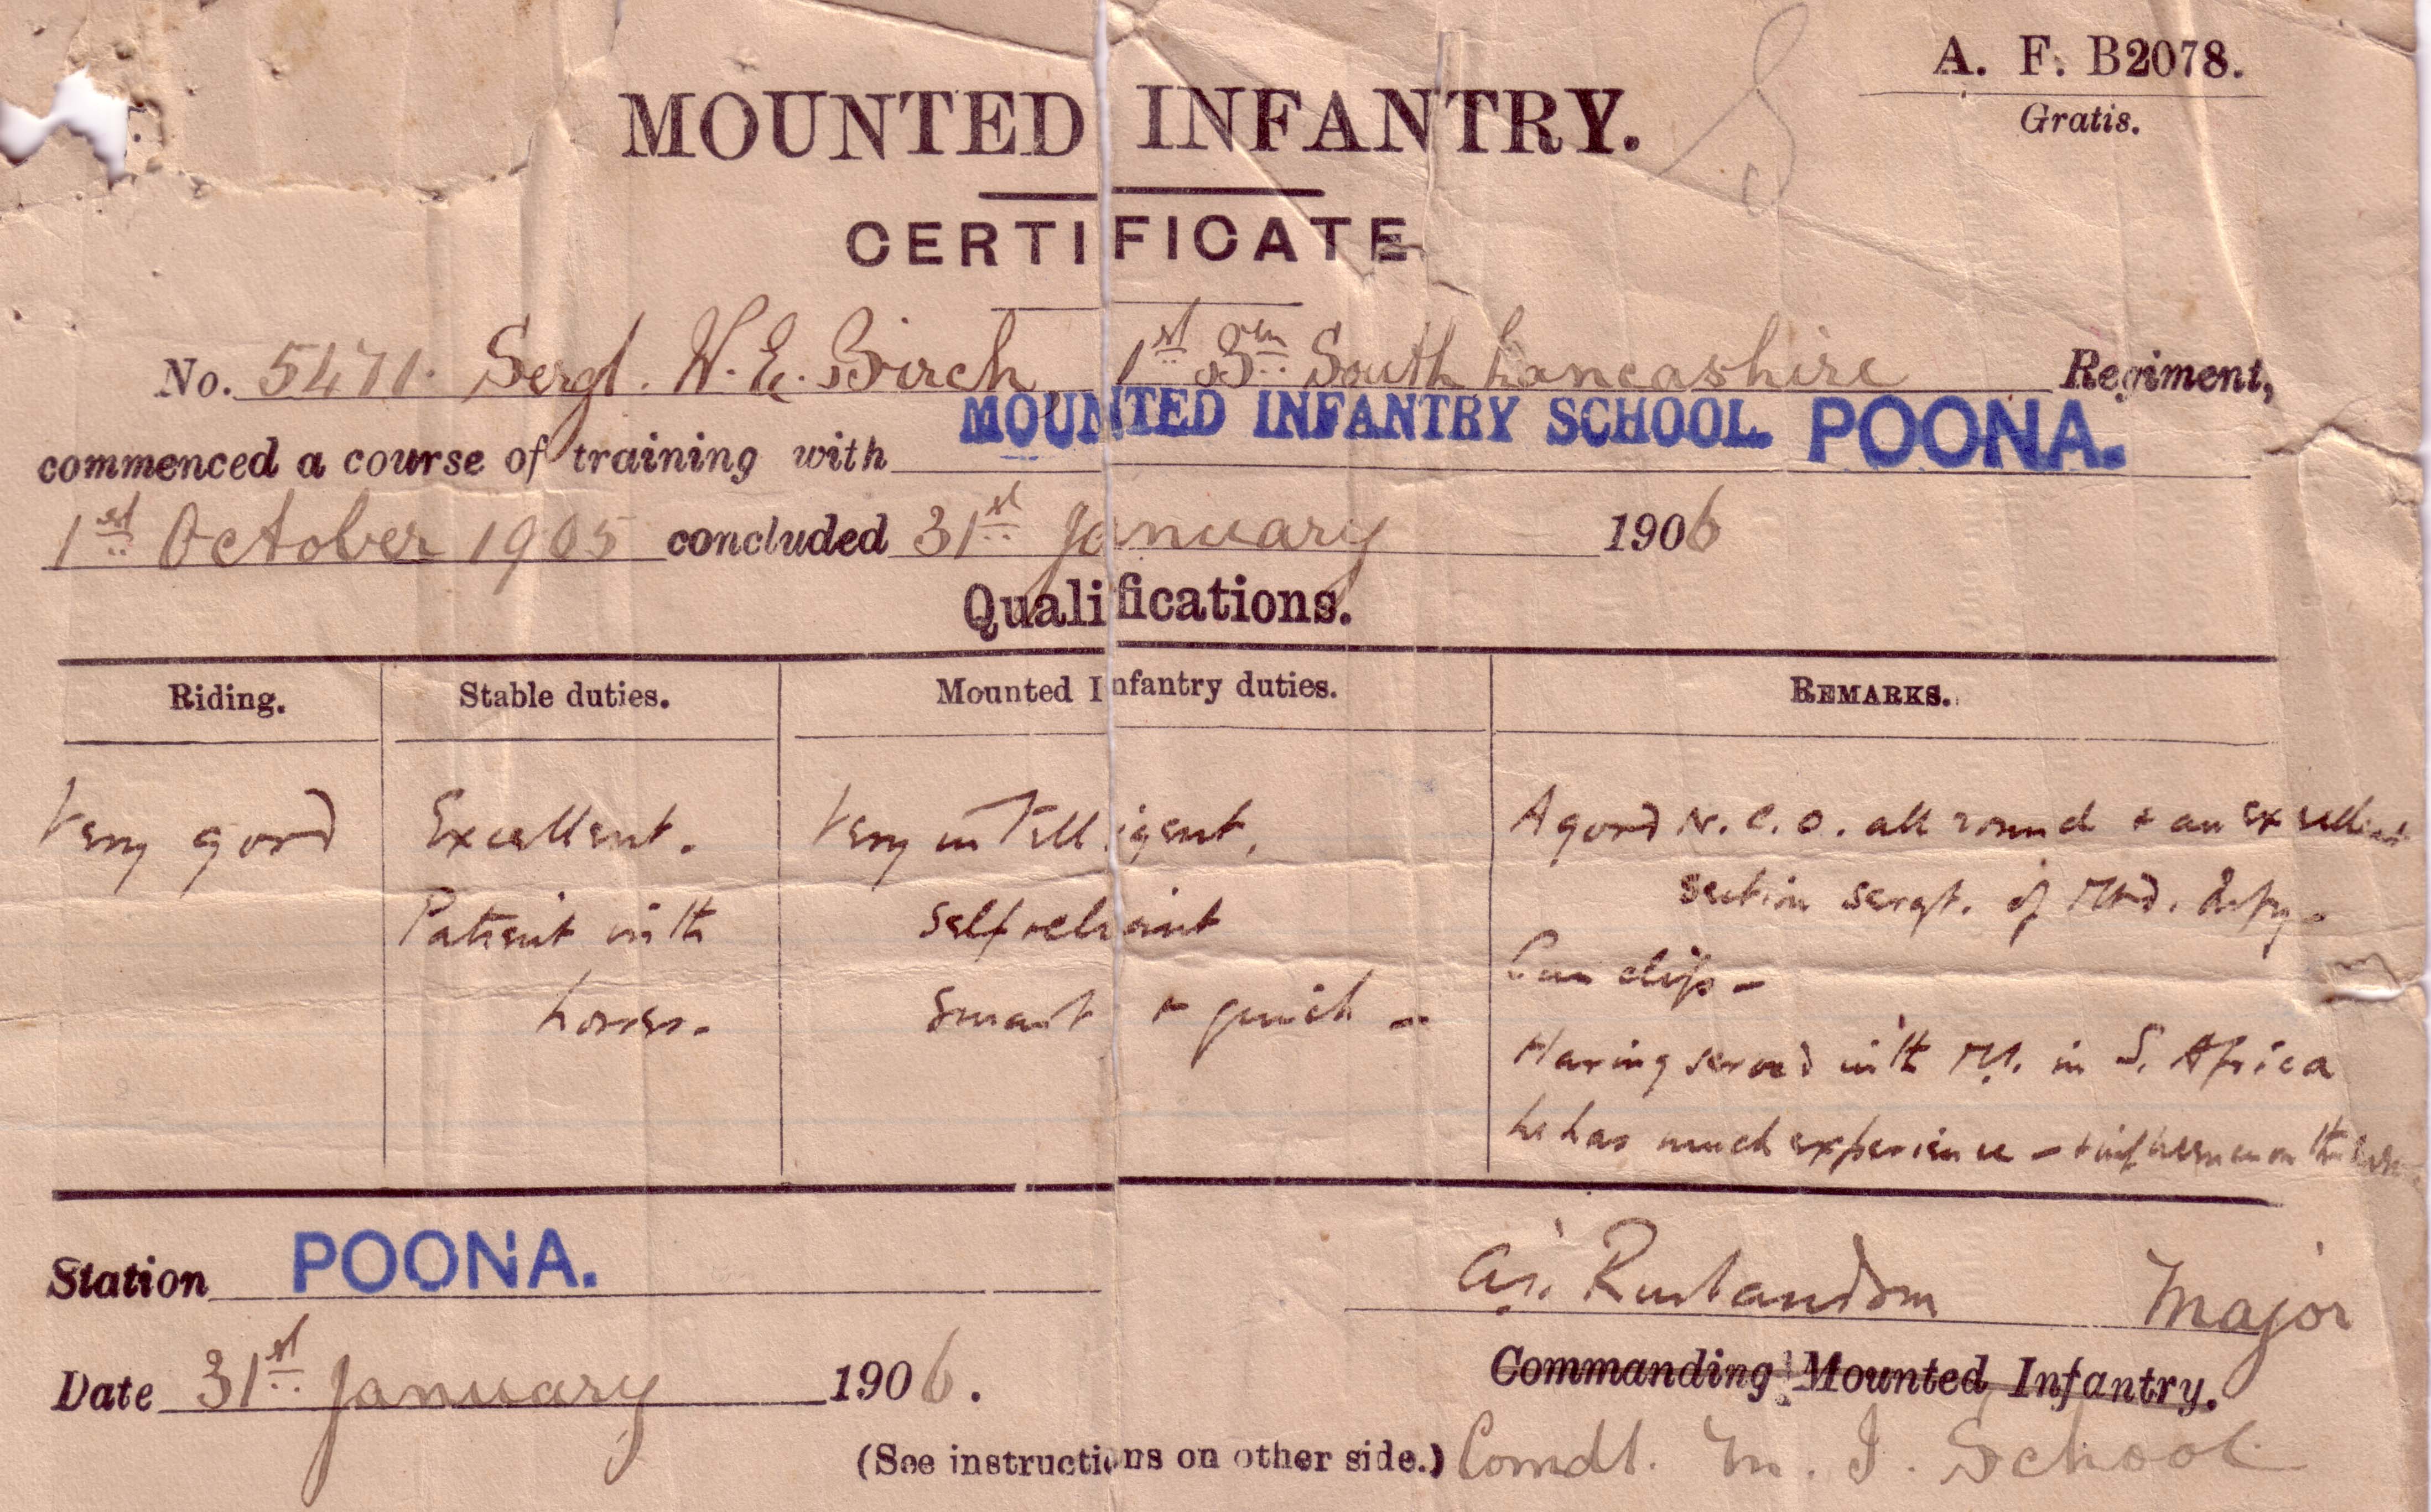 A. F. B2078.
Gratis.
MOUNTED INFANTRY.
CERTIFICATE
No. 5471. Sergt. W. E. Birch 1st Bn South Lancashire Regiment,
commenced a course of training with MOUNTED INFANTRY SCHOOL. POONA.
1st October 1905 concluded 31st January 1906
Qualifications.
Riding. Stable duties. Mounted Infantry duties. REMARKS.
Very good
Excellent.
Patient with
horses.
Very intelligent,
self reliant
smart + quick -
A good N. C. O. all round + an excellent
section sergt. of Mtd. Infy -
Can clip -
Having served with M.I. in S. Africa
he has much experience - + influence on
Station POONA.
Major
Date 31st January 1906.
Commanding Mounted Infantry.
(See instructions on other side.) Comdt. M. I. School